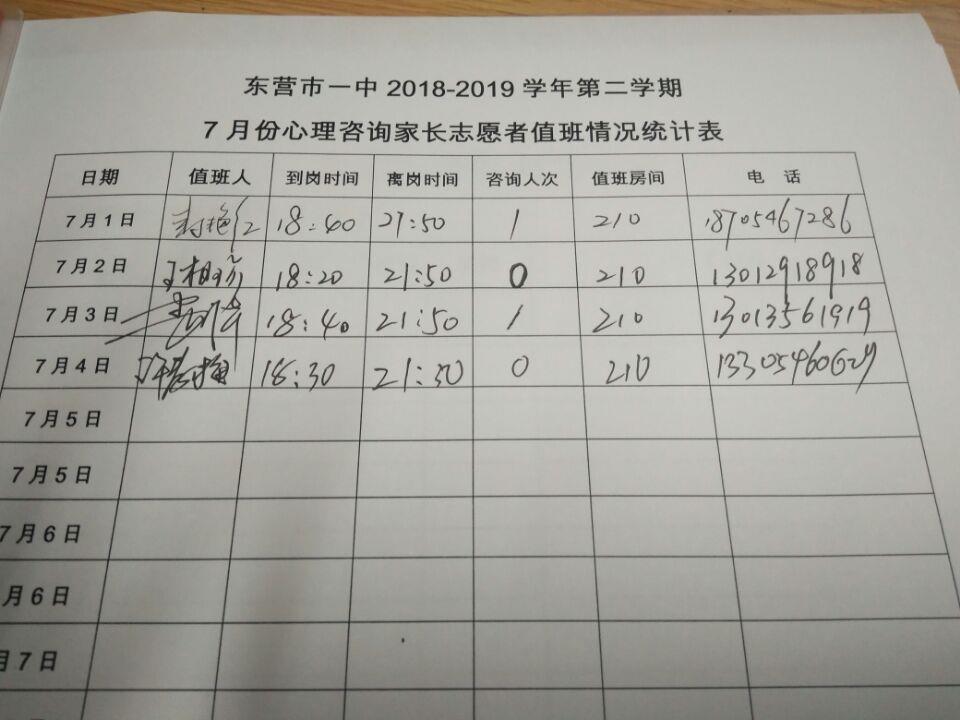 东营市一中 2018-2019 学年第二学期
7 月份心理咨询家长志愿者值班情况统计表
日期 值班人 到岗时间 离岗时间 咨询人次 值班房间 电 话
7月1日 18:40 21:50 1 210 18705467286
7月2日 18:20 21:50 0 210 13012918918
7月3日 18:40 21:50 1 210 13013561919
7月4日 18:30 21:30 0 210
7月5日
7月5日
7月6日
月6日
月7日